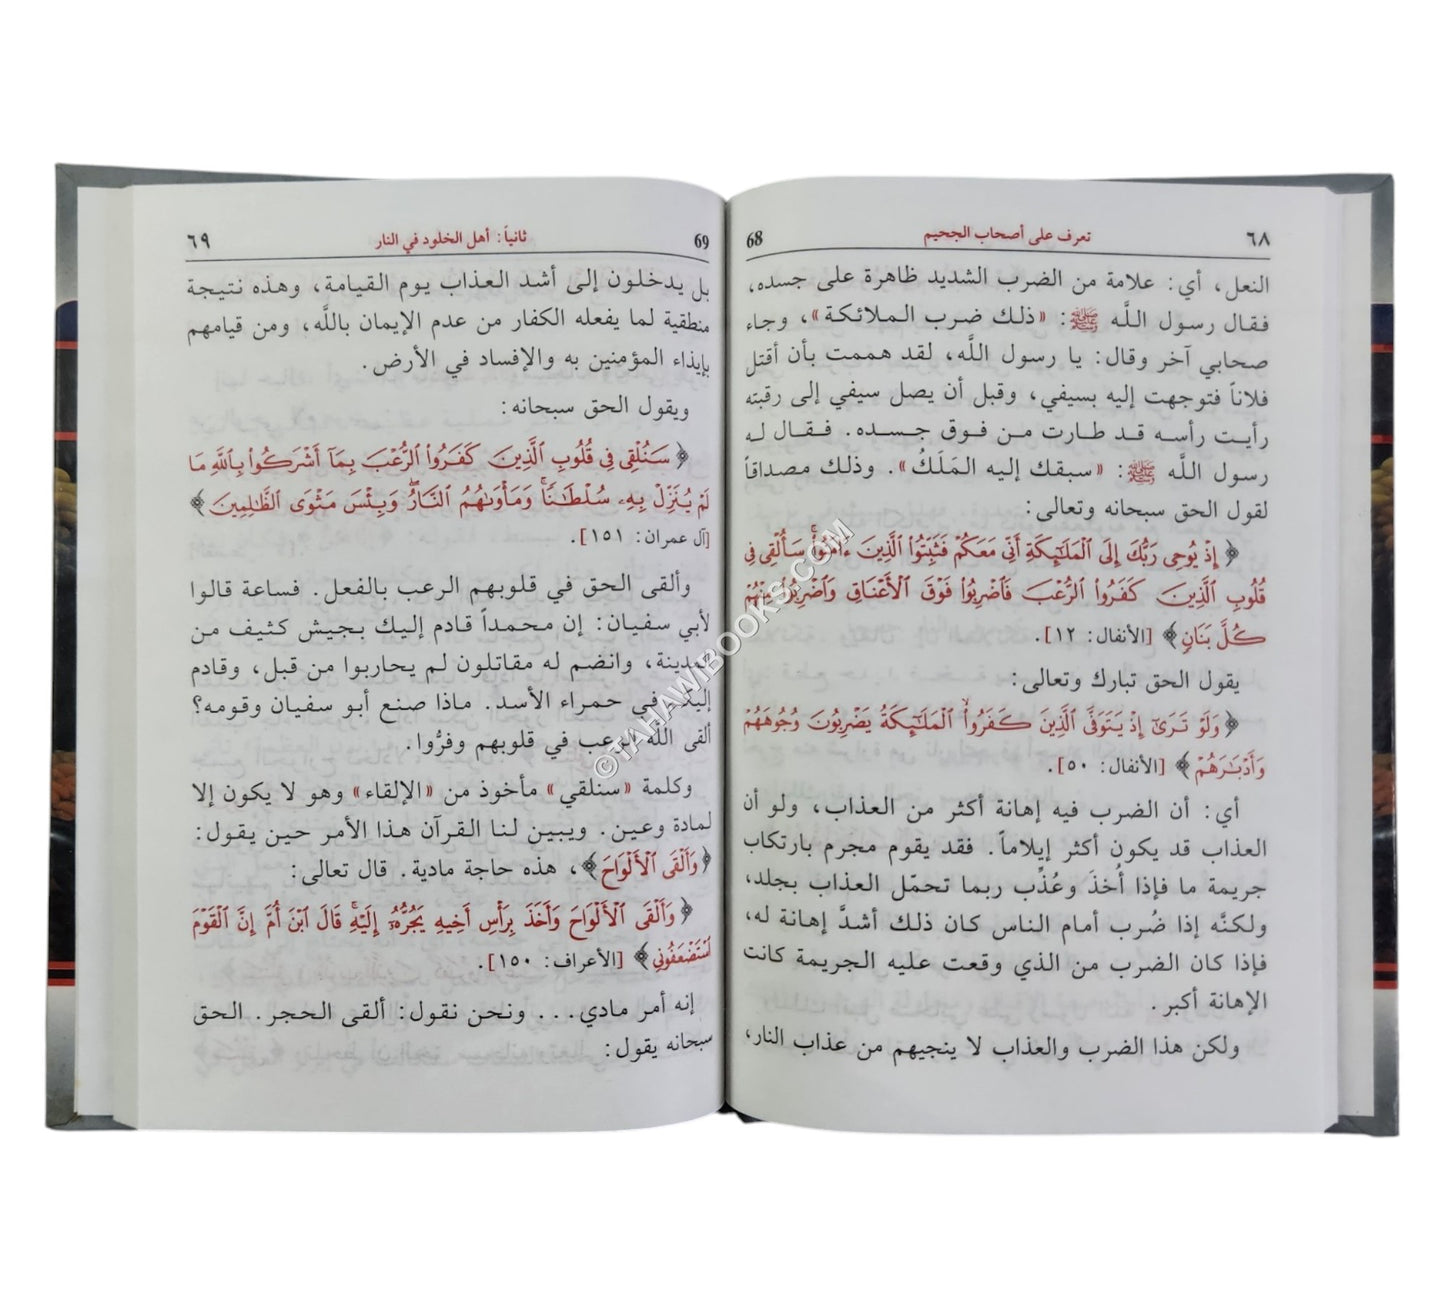 ٦٨ تعرف على أصحاب الجحيم 68
النعل، أي: علامة من الضرب الشديد ظاهرة على جسده،
فقال رسول اللَّه ﷺ: «ذلك ضرب الملائكة»، وجاء
صحابي آخر وقال: يا رسول اللَّه، لقد هممت بأن أقتل
فلاناً فتوجهت إليه بسيفي، وقبل أن يصل سيفي إلى رقبته
رأيت رأسه قد طارت من فوق جسده. فقال له
رسول اللَّه ﷺ: «سبقك إليه المَلَكُ». وذلك مصداقاً
لقول الحق سبحانه وتعالى:
﴿إِذْ يُوحِى رَبُّكَ إِلَى ٱلْمَلَـٰٓئِكَةِ أَنِّى مَعَكُمْ فَثَبِّتُوا۟ ٱلَّذِينَ ءَامَنُوا۟ۚ سَأُلْقِى فِى
قُلُوبِ ٱلَّذِينَ كَفَرُوا۟ ٱلرُّعْبَ فَٱضْرِبُوا۟ فَوْقَ ٱلْأَعْنَاقِ وَٱضْرِبُوا۟ مِنْهُمْ
كُلَّ بَنَانٍ﴾ [الأنفال: ١٢].
يقول الحق تبارك وتعالى:
﴿وَلَوْ تَرَىٰٓ إِذْ يَتَوَفَّى ٱلَّذِينَ كَفَرُوا۟ۙ ٱلْمَلَـٰٓئِكَةُ يَضْرِبُونَ وُجُوهَهُمْ
وَأَدْبَـٰرَهُمْ﴾ [الأنفال: ٥٠].
أي: أن الضرب فيه إهانة أكثر من العذاب، ولو أن
العذاب قد يكون أكثر إيلاماً. فقد يقوم مجرم بارتكاب
جريمة ما فإذا أُخذَ وعُذِّب ربما تحمّل العذاب بجلد،
ولكنَّه إذا ضُرب أمام الناس كان ذلك أشدَّ إهانة له،
فإذا كان الضرب من الذي وقعت عليه الجريمة كانت
الإهانة أكبر.
ولكن هذا الضرب والعذاب لا ينجيهم من عذاب النار،
69 ثانياً: أهل الخلود في النار ٦٩
بل يدخلون إلى أشد العذاب يوم القيامة، وهذه نتيجة
منطقية لما يفعله الكفار من عدم الإيمان باللَّه، ومن قيامهم
بإيذاء المؤمنين به والإفساد في الأرض.
ويقول الحق سبحانه:
﴿سَنُلْقِى فِى قُلُوبِ ٱلَّذِينَ كَفَرُوا۟ ٱلرُّعْبَ بِمَآ أَشْرَكُوا۟ بِٱللَّهِ مَا
لَمْ يُنَزِّلْ بِهِۦ سُلْطَـٰنًاۖ وَمَأْوَىٰهُمُ ٱلنَّارُۚ وَبِئْسَ مَثْوَى ٱلظَّـٰلِمِينَ﴾
[آل عمران: ١٥١].
وألقى الحق في قلوبهم الرعب بالفعل. فساعة قالوا
لأبي سفيان: إن محمداً قادم إليك بجيش كثيف من
المدينة، وانضم له مقاتلون لم يحاربوا من قبل، وقادم
إليك في حمراء الأسد. ماذا صنع أبو سفيان وقومه؟
ألقى اللَّه الرعب في قلوبهم وفرُّوا.
وكلمة «سنلقي» مأخوذ من «الإلقاء» وهو لا يكون إلا
لمادة وعين. ويبين لنا القرآن هذا الأمر حين يقول:
﴿وَأَلْقَى ٱلْأَلْوَاحَ﴾، هذه حاجة مادية. قال تعالى:
﴿وَأَلْقَى ٱلْأَلْوَاحَ وَأَخَذَ بِرَأْسِ أَخِيهِ يَجُرُّهُۥٓ إِلَيْهِۚ قَالَ ٱبْنَ أُمَّ إِنَّ ٱلْقَوْمَ
ٱسْتَضْعَفُونِى﴾ [الأعراف: ١٥٠].
إنه أمر مادي... ونحن نقول: ألقى الحجر. الحق
سبحانه يقول:
©TAHAWIBOOKS.COM